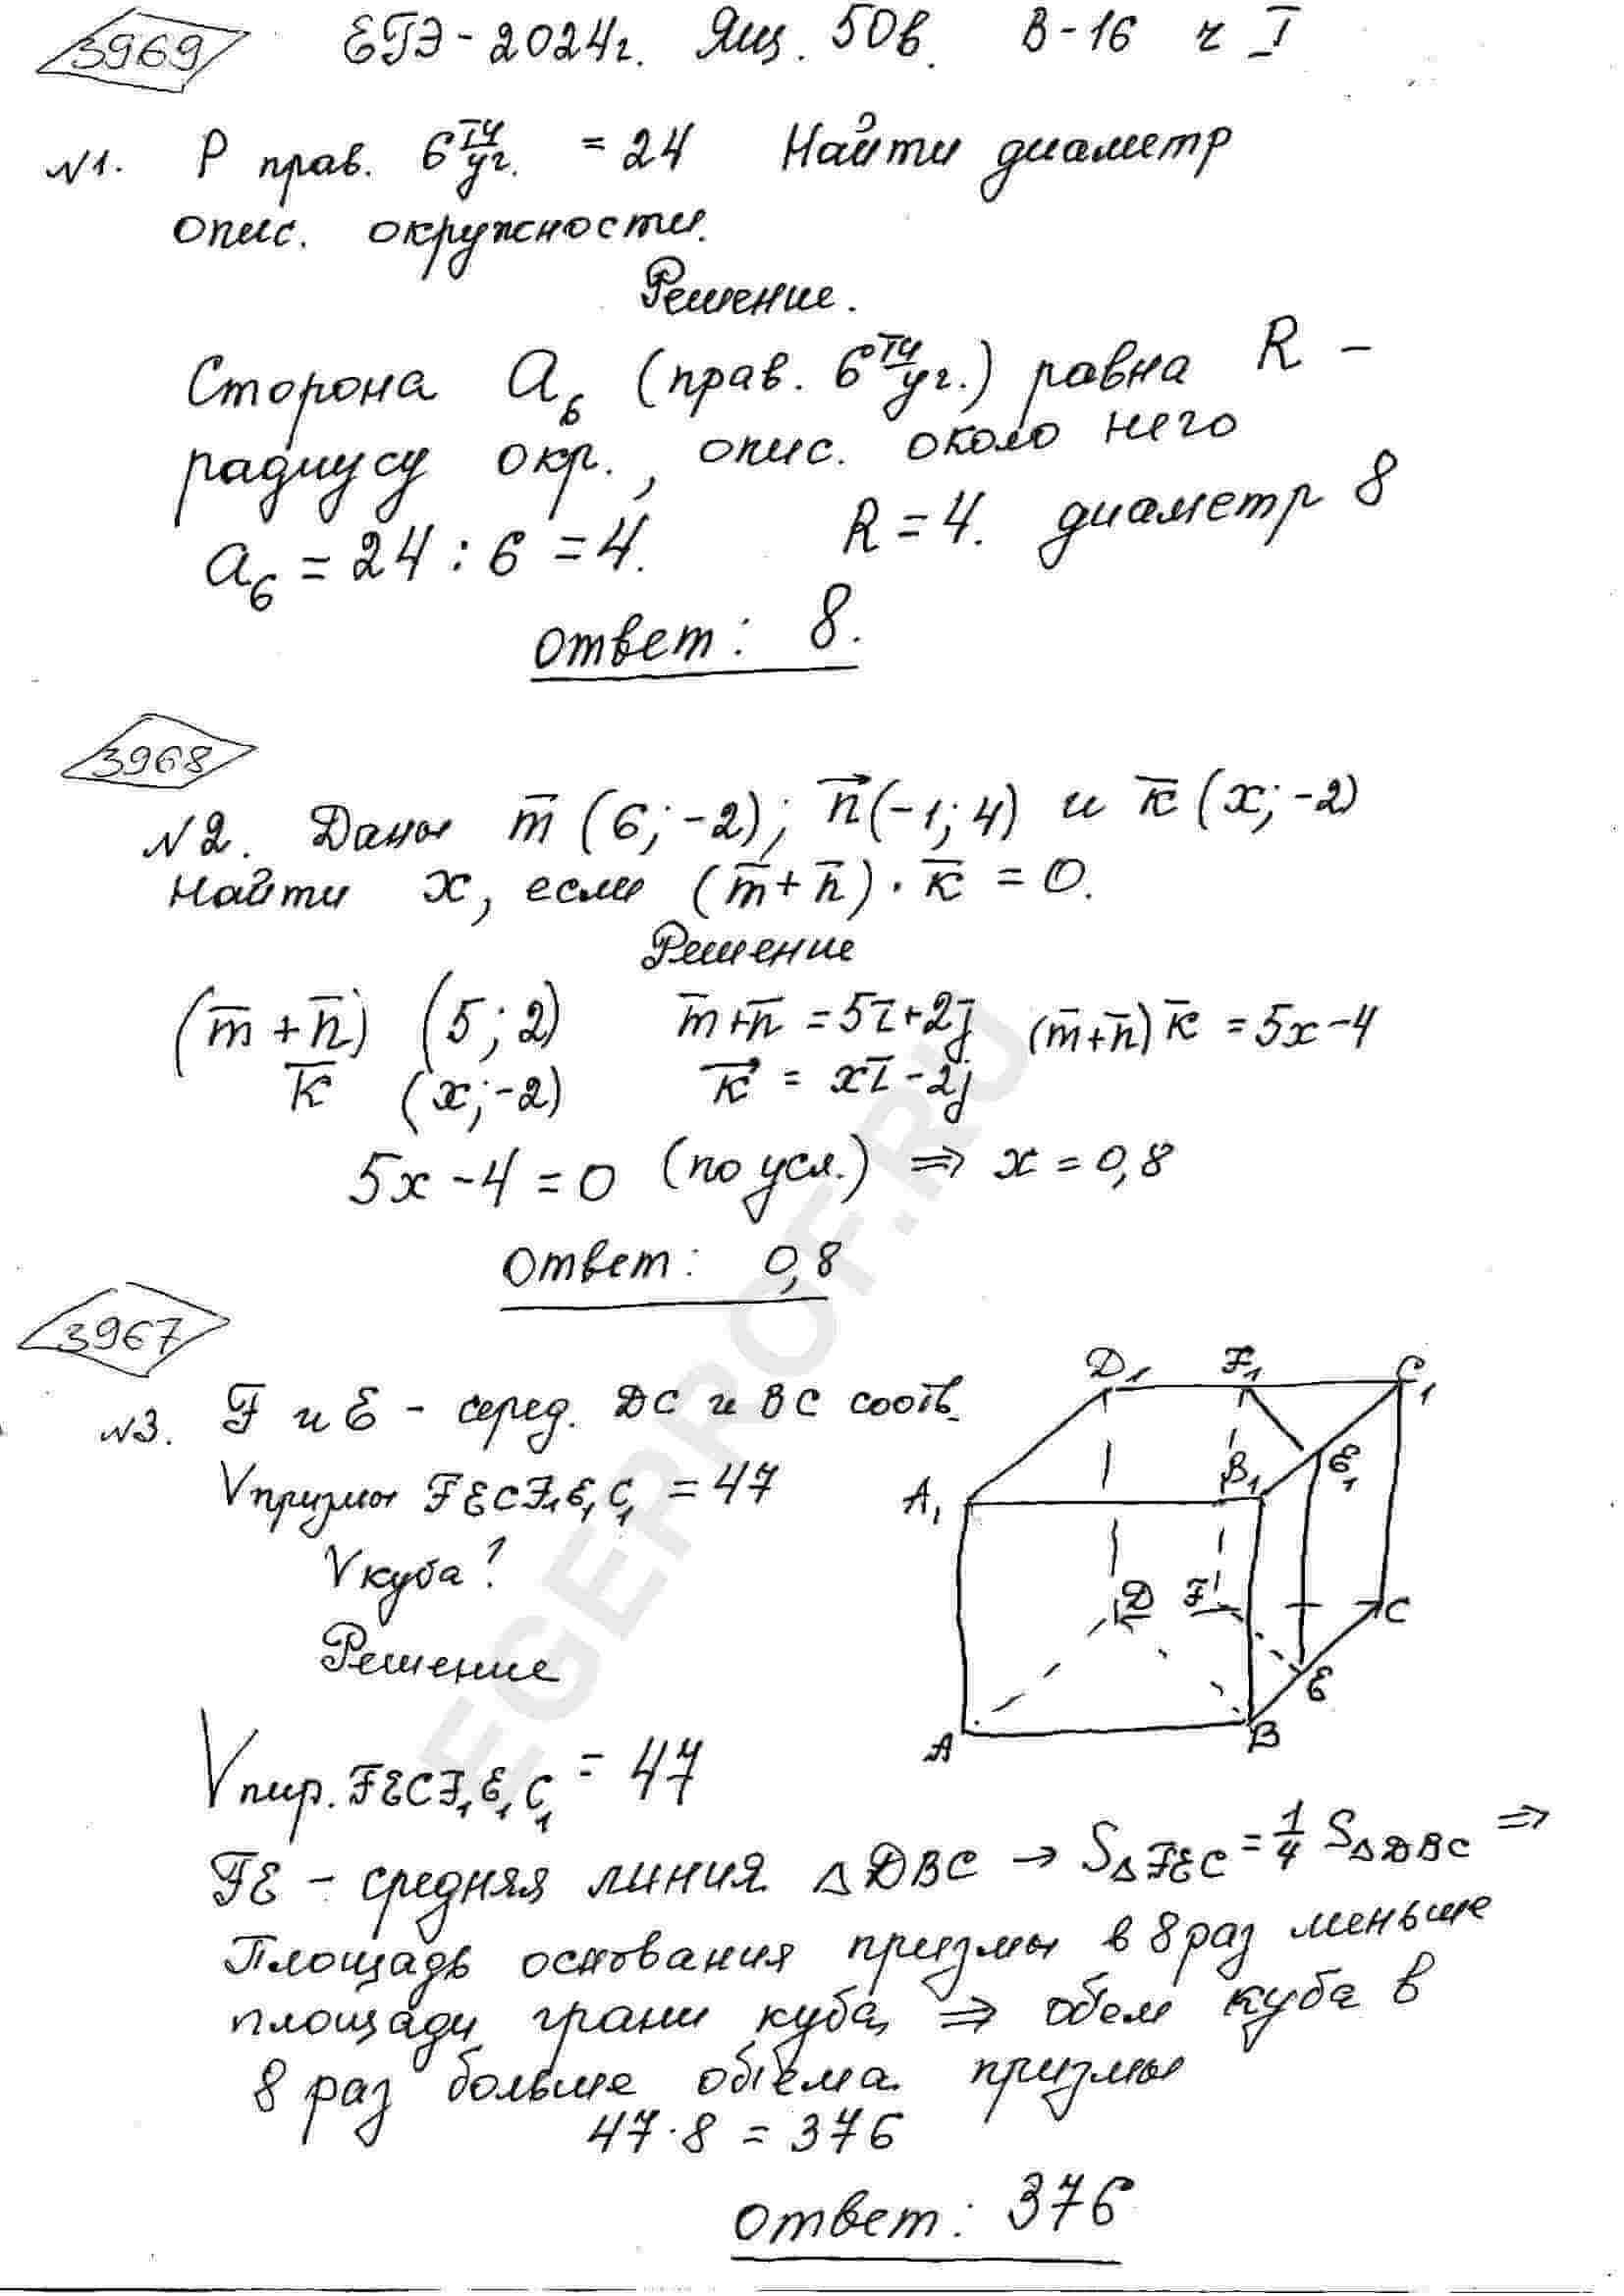 3969
ЕГЭ-2024г. Ящ. 50в. В-16 ч I
№1. Р прав. 6ти уг. = 24 Найти диаметр
опис. окружности.
Решение.
Сторона a₆ (прав. 6ти уг.) равна R –
радиусу окр., опис. около него
a₆ = 24 : 6 = 4. R = 4. диаметр 8
Ответ: 8.
3968
№2. Даны m̅ (6; -2); n⃗(-1; 4) и k̅ (x; -2)
Найти x, если (m̅ + n̅) · k̅ = 0.
Решение
(m̅ + n̅) (5; 2) m̅+n̅ = 5i̅+2j (m̅+n̅) k̅ = 5x-4
k̅ (x; -2) k⃗ = xi̅ -2j
5x - 4 = 0 (по усл.) ⇒ x = 0,8
Ответ: 0,8
3967
№3. F и E - серед. DC и BC соотв.
Vпризмы FECF₁E₁C₁ = 47
Vкуба?
Решение
D₁ F₁ C₁
A₁ B₁ E₁
D F C
A B E
Vпир. FECF₁E₁C₁ = 47
FE - средняя линия △DBC → S△FEC = 1/4 S△DBC ⇒
Площадь основания призмы в 8 раз меньше
площади грани куба, ⇒ обем куба в
8 раз больше объема призмы
47·8 = 376
Ответ: 376
EGEPROF.RU